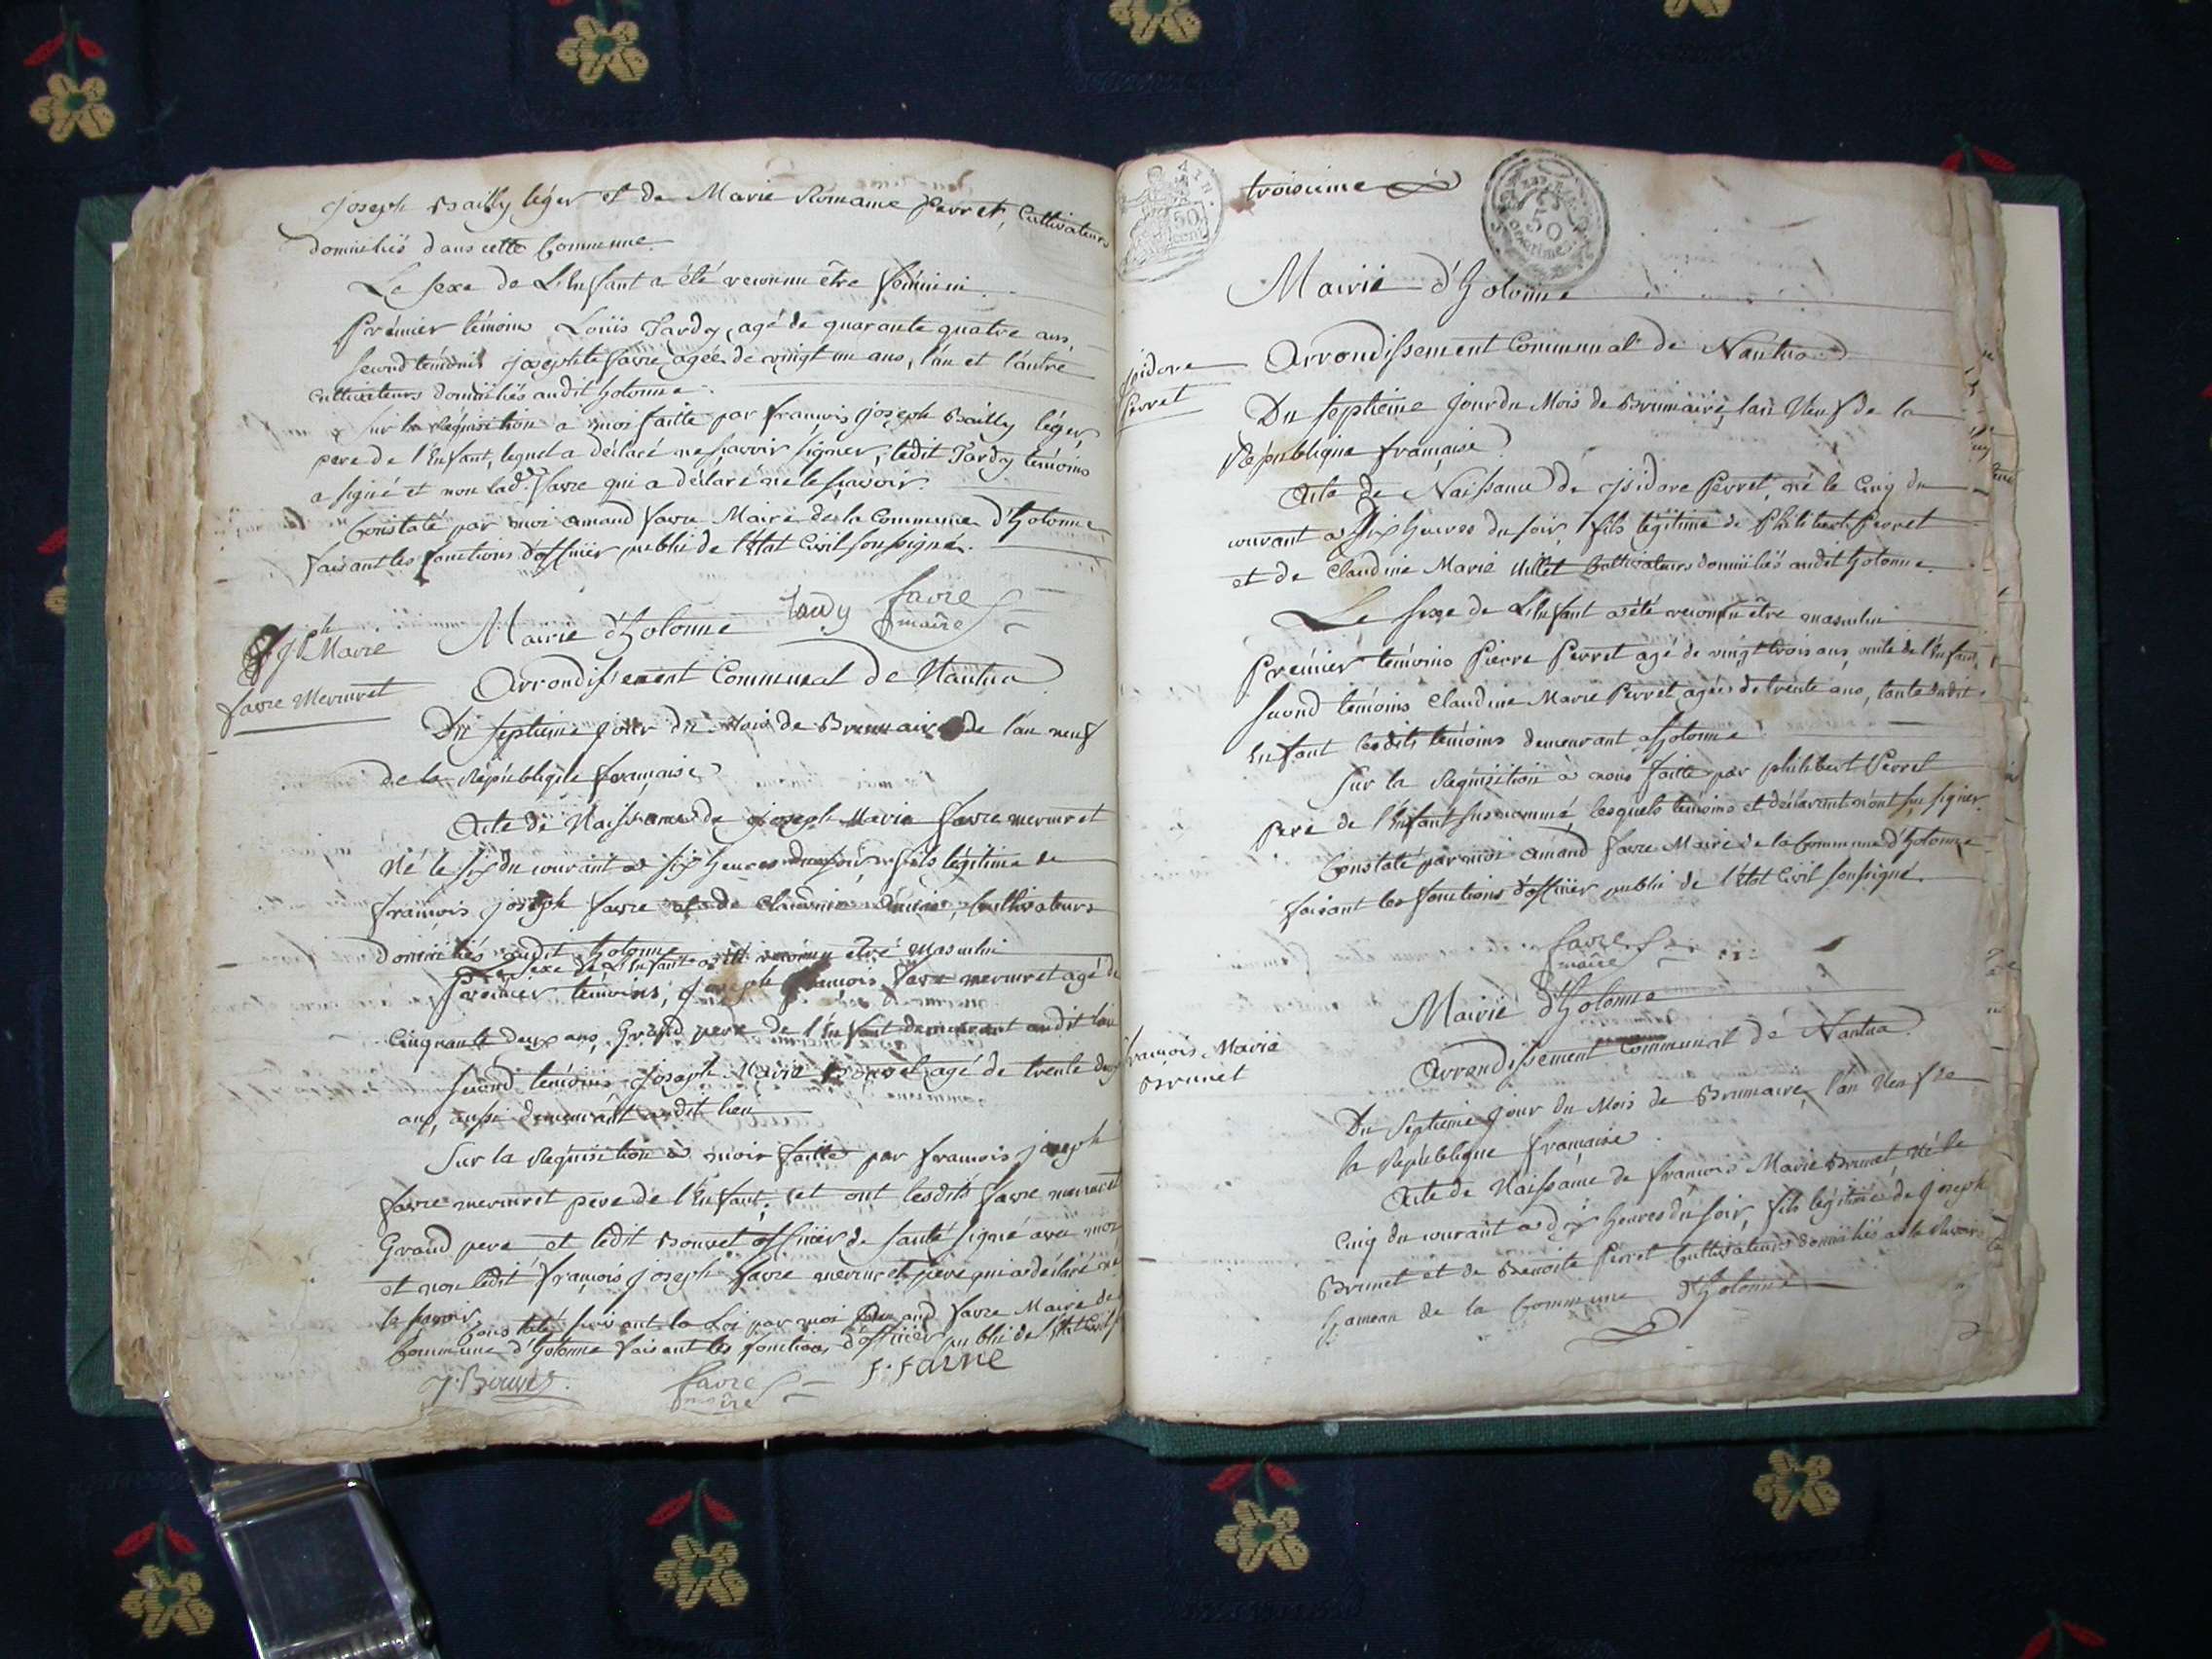 Joseph Bailly léger et de Marie Romaine Perret, Cultivateurs
domiciliés dans cette Commune.
Le sexe de L'Enfant a été reconnu être féminin.
Prémier témoins Louis Tardy, agé de quarante quatre ans,
second témoins josephte favre agée de vingt un ans, l'un et l'autre
cultivateurs domiciliés audit holonne.
Sur la réquisition à moi faitte par françois joseph Bailly léger,
pere de l'Enfant, lequel a déclaré ne sçavoir signer, ledit Tardy temoins
a signé et non lad.e favre qui a déclaré ne le sçavoir.
Constaté par moi amand favre Maire de la Commune d'holonne
faisant les fonctions d'officier public de l'Etat Civil soussigné.
Tardy favre
maire
Jph Marie
favre Mermet
Mairie d'holonne
Arrondissement Communal de Nantua
Du septieme jour du Mois de Brumaire de l'an neuf
de la République française
Acte de Naissance de joseph Marie favre mermet
Né le six du courant a six heures du soir fils légitime de
françois joseph favre et de Claudine, Cultivateurs
domiciliés audit holonne
Le Sexe de L'Enfant a été reconnu etre masculin
Prémier temoins, joseph françois favre mermet agé de
Cinquante deux ans, Grand pere de l'Enfant demeurant audit lieu
second temoins joseph Marie Bouvet agé de trente deux
ans, aussi demeurant audit lieu
Sur la réquisition à moi faitte par françois joseph
favre mermet pere de l'Enfant, et ont lesdits favre mermet
Grand pere et ledit Bouvet officier de santé signé avec moi
et non ledit françois joseph favre mermet pere qui a déclaré ne
le sçavoir.
Constaté suivant la Loi par moi amand favre Maire de
Commune d'holonne faisant les fonctions d'officier public de l'Etat Civil
J. Bouvet favre F. FAVRE
maire
AIN.
50
cent
troisieme
50
centimes
Mairie d'holonne
isidore
Perret
Arrondissement Communal de Nantua
Du septieme jour du Mois de Brumaire, l'an Neuf de la
République française
Acte de Naissance de isidore Perret, né le Cinq du
courant a dix heures du soir, fils légitime de Philibert Perret
et de Claudine Marie Cultivateurs domiciliés audit holonne.
Le sexe de L'Enfant a été reconnu être masculin
Prémier témoins Pierre Perret agé de vingt trois ans, oncle de l'Enfant,
second témoins Claudine Marie Perret agée de trente ans, tante dudit
Enfant lesdits témoins demeurant a holonne
Sur la réquisition à nous faitte par philibert Perret
pere de l'Enfant susnommé, lesquels témoins et déclarant n'ont su signer.
Constaté par moi amand favre Maire de la Commune d'holonne
faisant les fonctions d'officier public de l'Etat Civil soussigné.
favre
maire
françois Marie
Brunet
Mairie d'holonne
Arrondissement Communal de Nantua
Du Septieme jour du Mois de Brumaire, l'an Neuf de
la République française.
Acte de Naissance de françois Marie Brunet, Né le
Cinq du courant a dix heures du soir, fils légitime de joseph
Brunet et de Benoite Perret Cultivateurs domiciliés a
hameau de la Commune d'holonne